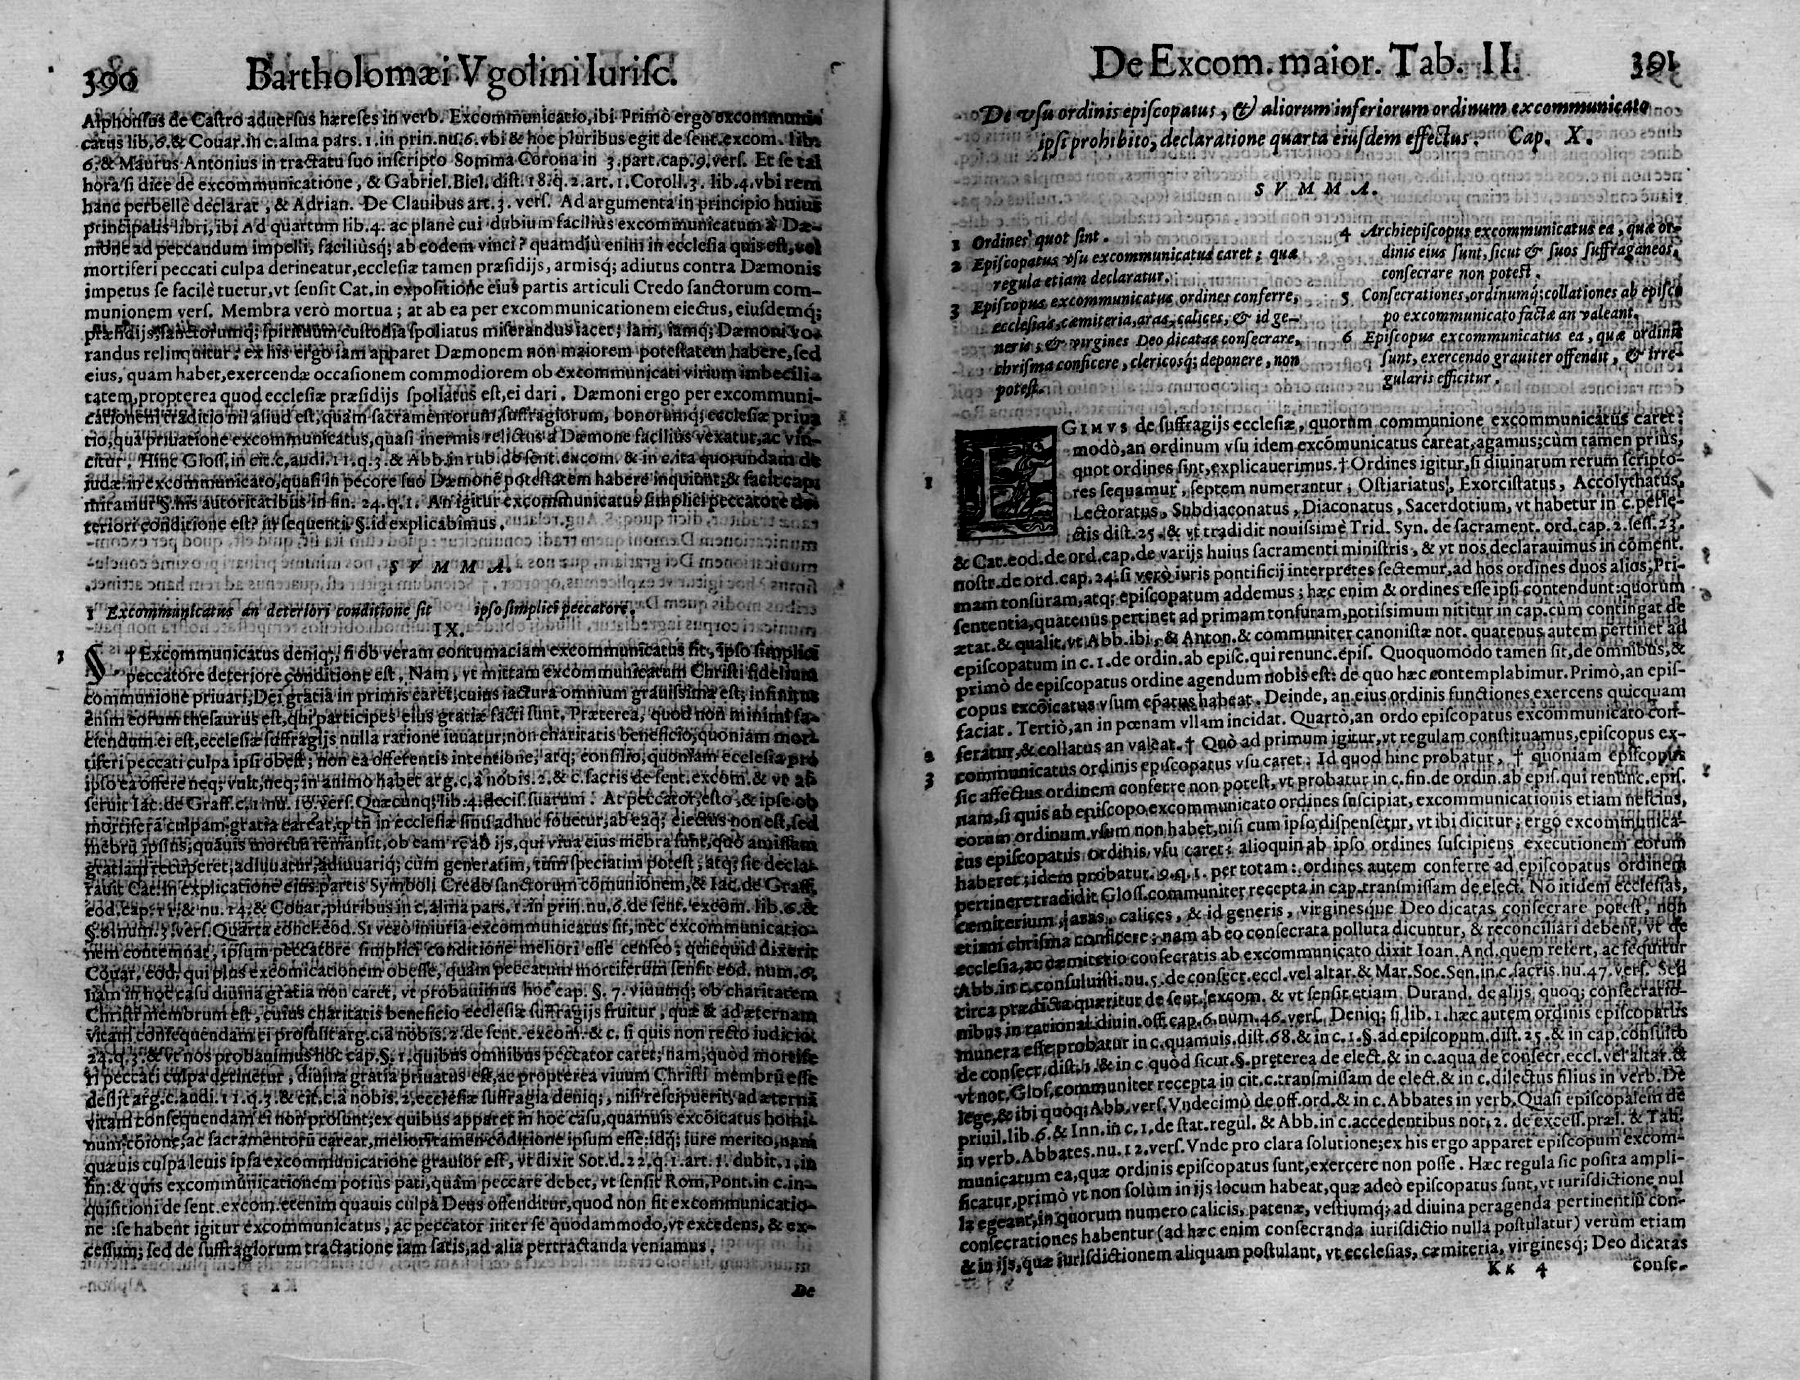 390 Bartholomæi Vgolini Iurisc.
Alphonsus de Castro aduersus hæreses in verb. Excommunicatio, ibi Primò ergo excommuni-
catus lib. 6. & Couar. in c. alma pars. 1. in prin. nu. 6. vbi & hoc pluribus egit de sent. excom. lib.
6. & Maurus Antonius in tractatu suo inscripto Somma Corona in 3. part. cap. 9. vers. Et se tal
hora si dice de excommunicatione, & Gabriel. Biel. dist. 18. q. 2. art. 1. Coroll. 3. lib. 4. vbi rem
hanc perbellè declarat, & Adrian. De Clauibus art. 3. vers. Ad argumenta in principio huius
principalis libri, ibi Ad quartum lib. 4. ac planè cui dubium facilius excommunicatum à Dæ-
mone ad peccandum impelli, faciliusq; ab eodem vinci? quamdiù enim in ecclesia quis est, vel
mortiferi peccati culpa detineatur, ecclesiæ tamen præsidijs, armisq; adiutus contra Dæmonis
impetus se facilè tuetur, vt sensit Cat. in expositione eius partis articuli Credo sanctorum com-
munionem vers. Membra verò mortua; at ab ea per excommunicationem eiectus, eiusdemq;
præsidijs, sanctorumq; spirituum custodia spoliatus miserandus iacet; iam, iamq; Dæmoni vo-
randus relinquitur: ex his ergo iam apparet Dæmonem non maiorem potestatem habere, sed
eius, quam habet, exercendæ occasionem commodiorem ob excommunicati virium imbecilli-
tatem, propterea quod ecclesiæ præsidijs spoliatus est, ei dari. Dæmoni ergo per excommuni-
cationem traditio nil aliud est, quam sacramentorum, suffragiorum, bonorumq; ecclesiæ priua
tio, qua priuatione excommunicatus, quasi inermis relictus à Dæmone facilius vexatur, ac vin-
citur. Hinc Gloss. in cit. c. audi. 11. q. 3. & Abb. in rub. de sent. excom. & in c. ita quorundam de
iudæ. in excommunicato, quasi in pecore suo Dæmonē potestatem habere inquiunt; & facit cap.
miramur §. his autoritatibus in fin. 24. q. 1. An igitur excommunicatus simplici peccatore de-
teriori conditione est? in sequenti §. id explicabimus.
S V M M A.
1 Excommunicatus an deteriori conditione sit ipso simplici peccatore.
IX.
1 § † Excommunicatus deniq;, si ob veram contumaciam excommunicatus sit, ipso simplici
peccatore deteriore conditione est. Nam, vt mittam excommunicatum Christi fidelium
communione priuari; Dei gratia in primis caret; cuius iactura omnium grauissima est; infinitus
enim eorum thesaurus est, qui participes eius gratiæ facti sunt. Præterea, quod non minimi fa-
ciendum ei est, ecclesiæ suffragijs nulla ratione iuuatur; non charitatis beneficio, quoniam mort
tiferi peccati culpa ipsi obest; non ea offerentis intentione, atq; consilio, quoniam ecclesia pro
ipso ea offere neq; vult, neq; in animo habet arg. c. à nobis. 2. & c. sacris de sent. excom. & vt as
seruit Iac. de Graff. c. 1. nu. 16. vers. Quæcunq; lib. 4. decis. suarum. At peccator, esto, & ipse ob
mortiferā culpam gratia careat, q̨ tñ in ecclesiæ sinu adhuc fouetur, ab eaq; eiectus non est, sed
mēbrū ipsius, quāuis mortuū remansit, ob eam rē ab ijs, qui viua eius mēbra sunt, quo amissam
gratiam recuperet, adiuuatur, adiuuariq; cùm generatim, tùm speciatim potest; atq; sic decla-
rauit Cat. in explicatione eius partis Symboli Credo sanctorum cōmunionem, & Iac. de Graff.
eod. cap. 11. & nu. 14. & Couar. pluribus in c. alma pars. 1. in prin. nu. 6. de sent. excōm. lib. 6. &
§. 6. num. 3. vers. Quarta concl. eod. Si verò iniuria excommunicatus sit, nec excommunicatio-
nem contemnat, ipsum peccatore simplici conditione meliori esse censeo; quicquid dixerit
Couar. eod. qui plus excōmicationem obesse, quàm peccatum mortiferum sensit eod. num. 6.
nam in hoc casu diuina gratia non caret, vt probauimus hoc cap. §. 7. viuumq; ob charitatem
Christi membrum est, cuius charitatis beneficio ecclesiæ suffragijs fruitur, quæ & ad æternam
vitam consequendam ei prosunt arg. c. à nobis. 2. de sent. excom. & c. si quis non recto iudicio.
24. q. 3. & vt nos probauimus hoc cap. §. 1. quibus omnibus peccator caret; nam, quòd mortife
ri peccati culpa detinetur, diuina gratia priuatus est, ac propterea viuum Christi membrū esse
desijt arg. c. audi. 11. q. 3. & cit. c. à nobis. 2. ecclesiæ suffragia deniq;, nisi resipuerit, ad æternā
vitam consequendam ei non prosunt; ex quibus apparet in hoc casu, quamuis excōicatus homi-
num cōione, ac sacramentorū careat, meliori tamen cōditione ipsum esse: idq; iure merito, nam
quæuis culpa leuis ipsa excommunicatione grauior est, vt dixit Sot. d. 22. q. 1. art. 1. dubit. 1. in
fin. & quis excommunicationem potius pati, quàm peccare debet, vt sensit Rom. Pont. in c. in-
quisitioni de sent. excom. etenim quauis culpa Deus offenditur, quod non fit excommunicatio-
ne: se habent igitur excommunicatus, ac peccator inter se quodammodo, vt excedens, & ex-
cessum; sed de suffragiorum tractatione iam satis, ad alia pertractanda veniamus.
De
De Excom. maior. Tab. II. 391
De vsu ordinis episcopatus, & aliorum inferiorum ordinum excommunicato
ipsi prohibito, declaratione quarta eiusdem effectus. Cap. X.
S V M M A.
1 Ordines quot sint.
2 Episcopatus vsu excommunicatus caret; quæ
regula etiam declaratur.
3 Episcopus excommunicatus ordines conferre,
ecclesias, cæmiteria, aras, calices, & id ge-
neris, & virgines Deo dicatas consecrare,
chrisma conficere, clericosq; deponere, non
potest.
4 Archiepiscopus excommunicatus ea, quæ or-
dinis eius sunt, sicut & suos suffraganeos,
consecrare non potest.
5 Consecrationes, ordinumq; collationes ab episco
po excommunicato factæ an valeant.
6 Episcopus excommunicatus ea, quæ ordinis
sunt, exercendo grauiter offendit, & irre-
gularis efficitur.
EGIMVS de suffragijs ecclesiæ, quorum communione excommunicatus caret:
modò, an ordinum vsu idem excōmunicatus careat, agamus; cùm tamen prius,
1 quot ordines sint, explicauerimus. † Ordines igitur, si diuinarum rerum scripto-
res sequamur, septem numerantur; Ostiariatus, Exorcistatus, Accolythatus,
Lectoratus, Subdiaconatus, Diaconatus, Sacerdotium, vt habetur in c. perle-
ctis dist. 25. & vt tradidit nouissimè Trid. Syn. de sacrament. ord. cap. 2. sess. 23.
& Cat. eod. de ord. cap. de varijs huius sacramenti ministris, & vt nos declarauimus in cōment.
nostr. de ord. cap. 24. si verò iuris pontificij interpretes sectemur, ad hos ordines duos alios, Pri-
mam tonsuram, atq; episcopatum addemus; hæc enim & ordines esse ipsi contendunt: quorum
sententia, quatenus pertinet ad primam tonsuram, potissimum nititur in cap. cum contingat de
ætat. & qualit. vt Abb. ibi, & Anton. & communiter canonistæ not. quatenus autem pertinet ad
episcopatum in c. 1. de ordin. ab episc. qui renunc. epis. Quoquomodo tamen sit, de omnibus, &
primò de episcopatus ordine agendum nobis est: de quo hæc contemplabimur. Primò, an epis-
copus excōicatus vsum ep̄atus habeat. Deinde, an eius ordinis functiones exercens quicquam
faciat. Tertiò, an in pœnam vllam incidat. Quartò, an ordo episcopatus excommunicato con-
2 feratur, & collatus an valeat. † Quò ad primum igitur, vt regulam constituamus, episcopus ex-
3 communicatus ordinis episcopatus vsu caret: Id quod hinc probatur, † quoniam episcopus
sic affectus ordinem conferre non potest, vt probatur in c. fin. de ordin. ab epis. qui renunc. epis.
nam, si quis ab episcopo excommunicato ordines suscipiat, excommunicationis etiam nescius,
eorum ordinum vsum non habet, nisi cum ipso dispensetur, vt ibi dicitur; ergo excommunica-
tus episcopatus ordinis vsu caret: alioquin ab ipso ordines suscipiens executionem eorum
haberet; idem probatur. 9. q. 1. per totam: ordines autem conferre ad episcopatus ordinem
pertinere tradidit Gloss. communiter recepta in cap. transmissam de elect. Nō itidem ecclesias,
cæmiterium, aras, calices, & id generis, virginesque Deo dicatas consecrare potest, non
etiam chrisma conficere: nam ab eo consecrata polluta dicuntur, & reconciliari debent, vt de
ecclesia, ac cæmiterio consecratis ab excommunicato dixit Ioan. And. quem refert, ac sequitur
Abb. in c. consuluisti. nu. 5. de consecr. eccl. vel altar. & Mar. Soc. Sen. in c. sacris. nu. 47. vers. Sed
circa prædicta quæritur de sent. excom. & vt sensit etiam Durand. de alijs quoq; consecratio-
nibus in rational. diuin. off. cap. 6. num. 46. vers. Deniq; si. lib. 1. hæc autem ordinis episcopatus
munera esse, probatur in c. quamuis. dist. 68. & in c. 1. §. ad episcopum. dist. 25. & in cap. consulto
de consecr. dist. 1. & in c. quòd sicut. §. præterea de elect. & in c. aqua de consecr. eccl. vel altar. &
vt not. Glos. communiter recepta in cit. c. transmissam de elect. & in c. dilectus filius in verb. De
lege, & ibi quoq; Abb. vers. Vndecimò de off. ord. & in c. Abbates in verb. Quasi episcopalem de
priuil. lib. 6. & Inn. in c. 1. de stat. regul. & Abb. in c. accedentibus not. 2. de excess. præl. & Tab.
in verb. Abbates. nu. 12. vers. Vnde pro clara solutione; ex his ergo apparet episcopum excom-
municatum ea, quæ ordinis episcopatus sunt, exercere non posse. Hæc regula sic posita ampli-
ficatur, primò vt non solùm in ijs locum habeat, quæ adeò episcopatus sunt, vt iurisdictione nul
la egeant, in quorum numero calicis, patenæ, vestiumq; ad diuina peragenda pertinentiū con-
consecrationes habentur (ad hæc enim consecranda iurisdictio nulla postulatur) verùm etiam
& in ijs, quæ iurisdictionem aliquam postulant, vt ecclesias, cæmiteria, virginesq; Deo dicatas
Kk 4 conse-